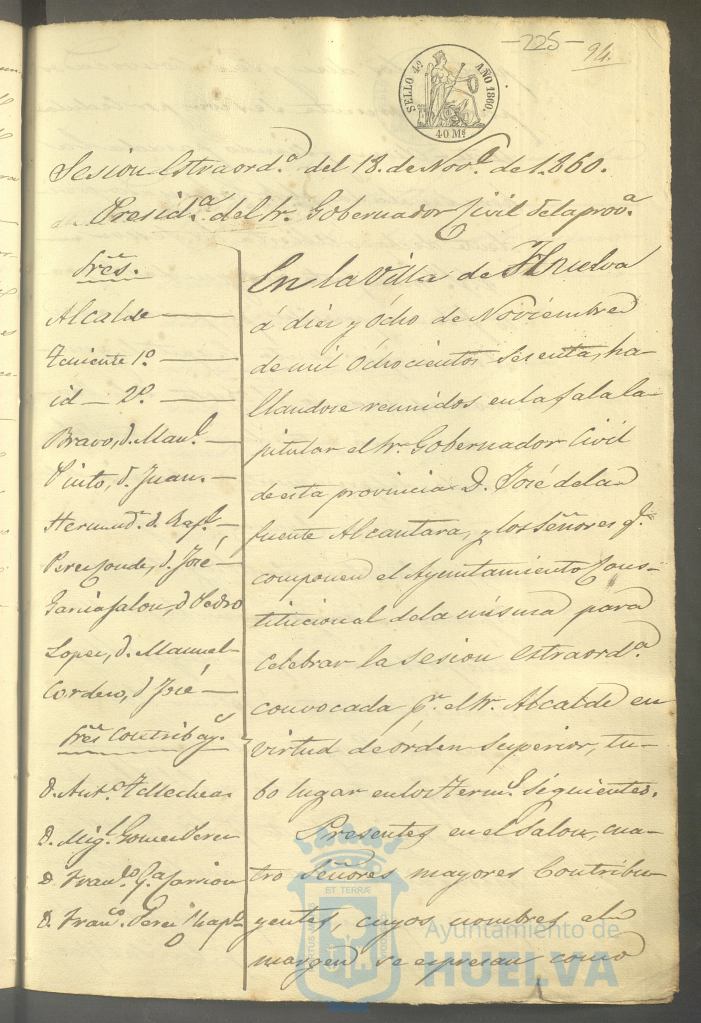 -225-
94.
SELLO 4º AÑO 1860.
40 Mˢ
Sesion Estraordª del 18. de Novᵉ de 1.860.
Presidª del Sr. Gobernador Civil de la provª
Sres.
Alcalde
Teniente 1º
id 2º
Bravo, d. Manˡ
Pinto, d. Juan.
Hernandᶻ d. Rafˡ
Perez Conde, d. José
Garcia Jalon, d. Pedro
Lopez, d. Manuel
Cordero, d. José
Sres Contribuyˢ
D. Antº Tellechea
D. Migˡ Gomez
D. Franᶜº Gª
D. Franᶜº Perez
En la Villa de Huelva
á diez y Ócho de Noviembre
de mil Ochocientos Sesenta, ha-
llandose reunidos en la Sala Ca-
pitular el Sr. Gobernador Civil
de esta provincia D. José de la
fuente Alcantara, y los Señores qᵉ
componen el Ayuntamiento Cons-
titucional de la misma para
Celebrar la Sesion Estraordª
convocada pʳ el Sr. Alcalde en
virtud de órden Superior, tu-
bo lugar en los Termˢ Siguientes.
Presentes en el Salon, cua-
tro Señores mayores Contribu-
yentes, cuyos nombres al
margen se espresan como
ET TERRÆ
Ayuntamiento de
HUELVA